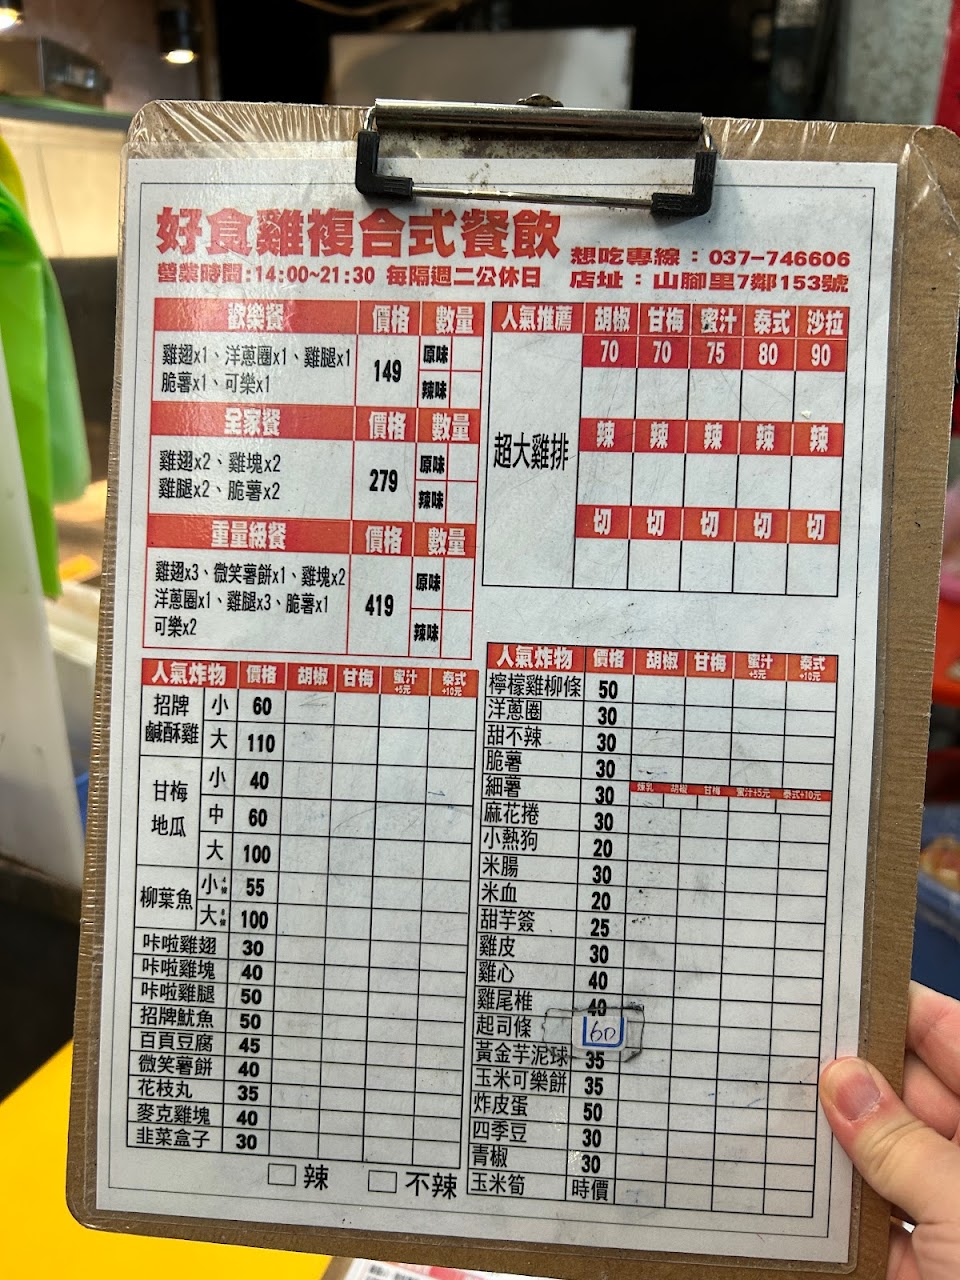 好食雞複合式餐飲
想吃專線：037-746606
營業時間:14:00~21:30 每隔週二公休日
店址：山腳里7鄰153號
歡樂餐 價格 數量
雞翅x1、洋蔥圈x1、雞腿x1
脆薯x1、可樂x1
149
原味
辣味
全家餐 價格 數量
雞翅x2、雞塊x2
雞腿x2、脆薯x2
279
原味
辣味
重量級餐 價格 數量
雞翅x3、微笑薯餅x1、雞塊x2
洋蔥圈x1、雞腿x3、脆薯x1
可樂x2
419
原味
辣味
人氣推薦 胡椒 甘梅 蜜汁 泰式 沙拉
70 70 75 80 90
超大雞排
辣 辣 辣 辣 辣
切 切 切 切 切
人氣炸物 價格 胡椒 甘梅 蜜汁+5元 泰式+10元
招牌鹹酥雞 小 60
大 110
甘梅地瓜 小 40
中 60
大 100
柳葉魚 小 55
大 100
咔啦雞翅 30
咔啦雞塊 40
咔啦雞腿 50
招牌魷魚 50
百頁豆腐 45
微笑薯餅 40
花枝丸 35
麥克雞塊 40
韭菜盒子 30
人氣炸物 價格 胡椒 甘梅 蜜汁+5元 泰式+10元
檸檬雞柳條 50
洋蔥圈 30
甜不辣 30
脆薯 30
細薯 30 煉乳 胡椒 甘梅 蜜汁+5元 泰式+10元
麻花捲 30
小熱狗 20
米腸 30
米血 20
甜芋簽 25
雞皮 30
雞心 40
雞尾椎 40
起司條 60
黃金芋泥球 35
玉米可樂餅 35
炸皮蛋 50
四季豆 30
青椒 30
玉米筍 時價
辣 不辣